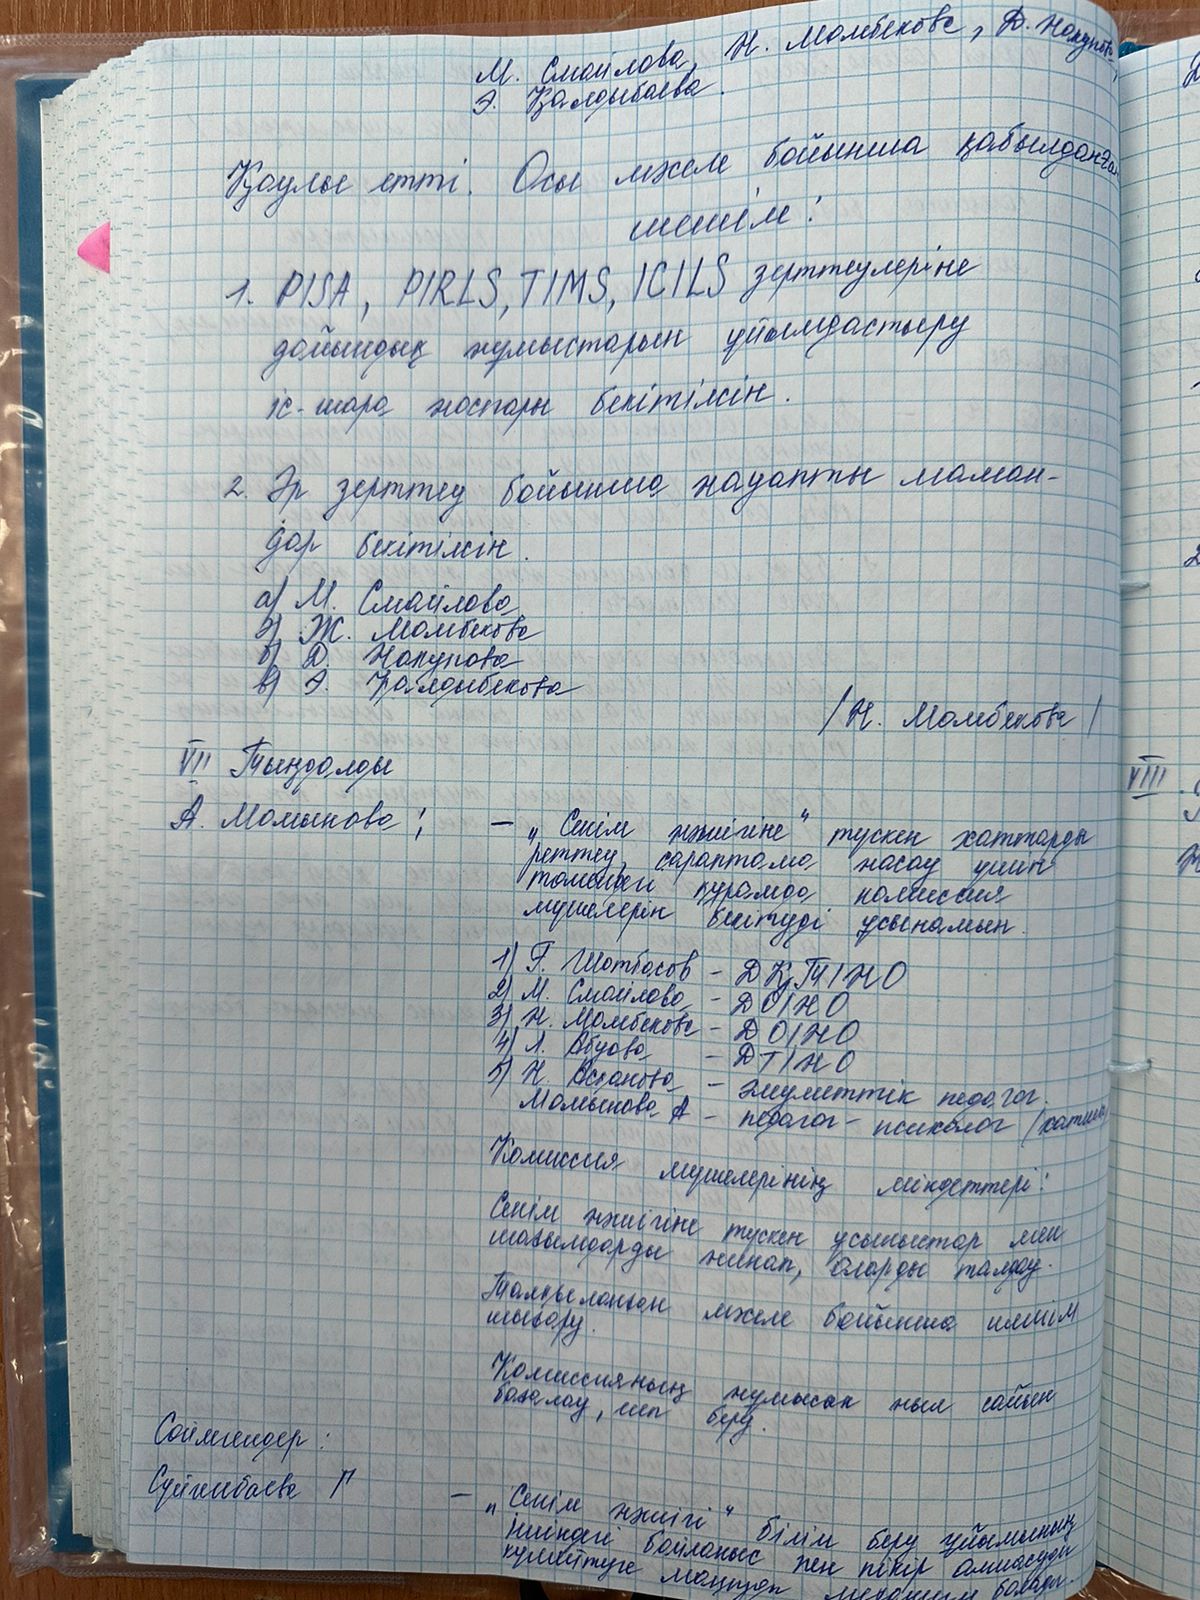 М. Смайлова, Н. Момбекова, Д. Накупова,
Э. Қалдыбаева.
Қаулы етті. Осы мәселе бойынша қабылданған
шешім:
1. PISA, PIRLS, TIMS, ICILS зерттеулеріне
дайындық жұмыстарын ұйымдастыру
іс-шара жоспары бекітілсін.
2. Әр зерттеу бойынша жауапты маман-
дар бекітілсін.
а) М. Смайлова
ә) Ж. Момбекова
б) Д. Накупова
в) Э. Қалдыбекова
/Н. Момбекова/
VII Тыңдалды
А. Момынова: - „Сенім жәшігіне" түскен хаттарды
реттеу, сараптама жасау үшін
төмендегі құрамда комиссия
мүшелерін бекітуді ұсынамын.
1) Г. Шотбасов - ДҚТІЖО
2) М. Смайлова - ДОІЖО
3) Н. Момбекова - ДОІЖО
4) Л. Абуова - ДТІЖО
5) Н. Оспанова - әлуметтік педагог.
Момынова А - педагог-психолог /хатшы/
Комиссия мүшелерінің міндеттері:
Сенім жәшігіне түскен ұсыныстар мен
шағымдарды жинап, оларды талдау.
Талқыланған мәселе бойынша шешім
шығару.
Комиссияның жұмысын жыл сайын
бағалау, есеп беру.
Сөйлегендер:
Сүйгенбаева Г - „Сенім жәшігі" білім беру ұйымының
ішіндегі байланыс пен пікір алмасуды
күшейтуге маңызды механизм болады.
VIII.